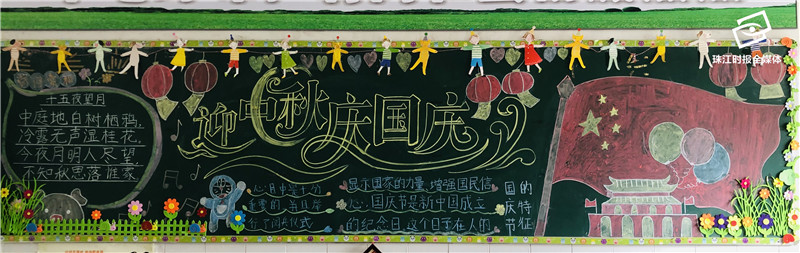 珠江时报全媒体
十五夜望月
中庭地白树栖鸦,
冷露无声湿桂花,
今夜月明人尽望,
不知秋思落谁家
迎中秋庆国庆
心月中是十分
重要的
显示国家的力量,增强国民信
心,国庆节是新中国成立
的纪念日,这个日子在人的
国庆节
的特征